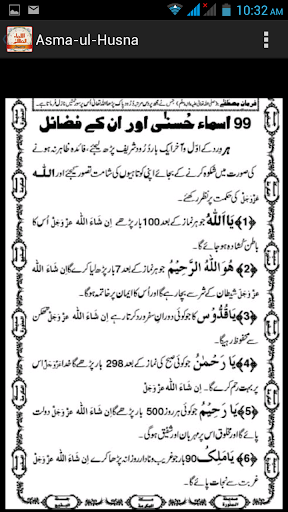 10:32 AM
Asma-ul-Husna
99 اسماء حُسنٰی اور ان کے فضائل
ہر ورد کے اوّل و آخر ایک بار دُرود شریف پڑھ لیجئے، فائدہ ظاہر نہ ہونے
کی صورت میں شکوہ کرنے کے بجائے اپنی کوتاہیوں کی شامت تصور کیجئے اور اللہ
عَزَّوَجَلَّ کی حکمت پر نظر رکھئے۔
﴿1﴾ یَا اَللّٰہُ جو ہر نماز کے بعد 100 بار پڑھے اِن شَاءَ اللہ عَزَّوَجَلَّ اُس کا
باطن کُشادہ ہو جائے گا۔
﴿2﴾ ھُوَ اللّٰہُ الرَّحِیْمُ جو ہر نماز کے بعد 7 بار پڑھ لیا کرے گا اِن شَاءَ اللہ
عَزَّوَجَلَّ شیطان کے شر سے بچا رہے گا اور اُس کا ایمان پر خاتمہ ہوگا۔
﴿3﴾ یَا قُدُّوْسُ کا جو کوئی دورانِ سفر ورد کرتا رہے اِن شَاءَ اللہ عَزَّوَجَلَّ تھکن
سے محفوظ رہیگا۔
﴿4﴾ یَا رَحْمٰنُ جو کوئی صبح کی نماز کے بعد 298 بار پڑھے گا خدا عَزَّوَجَلَّ اس
پر بہت رحم کرے گا۔
﴿5﴾ یَا رَحِیْمُ جو کوئی ہر روز 500 بار پڑھے گا اِن شَاءَ اللہ عَزَّوَجَلَّ دولت
پائے گا اور مخلوق اس پر مہربان اور شفیق ہوگی۔
﴿6﴾ یَا مَلِکُ 90 بار جو غریب و نادار روزانہ پڑھا کرے اِن شَاءَ اللہ عَزَّوَجَلَّ
غربت سے نجات پائے گا۔